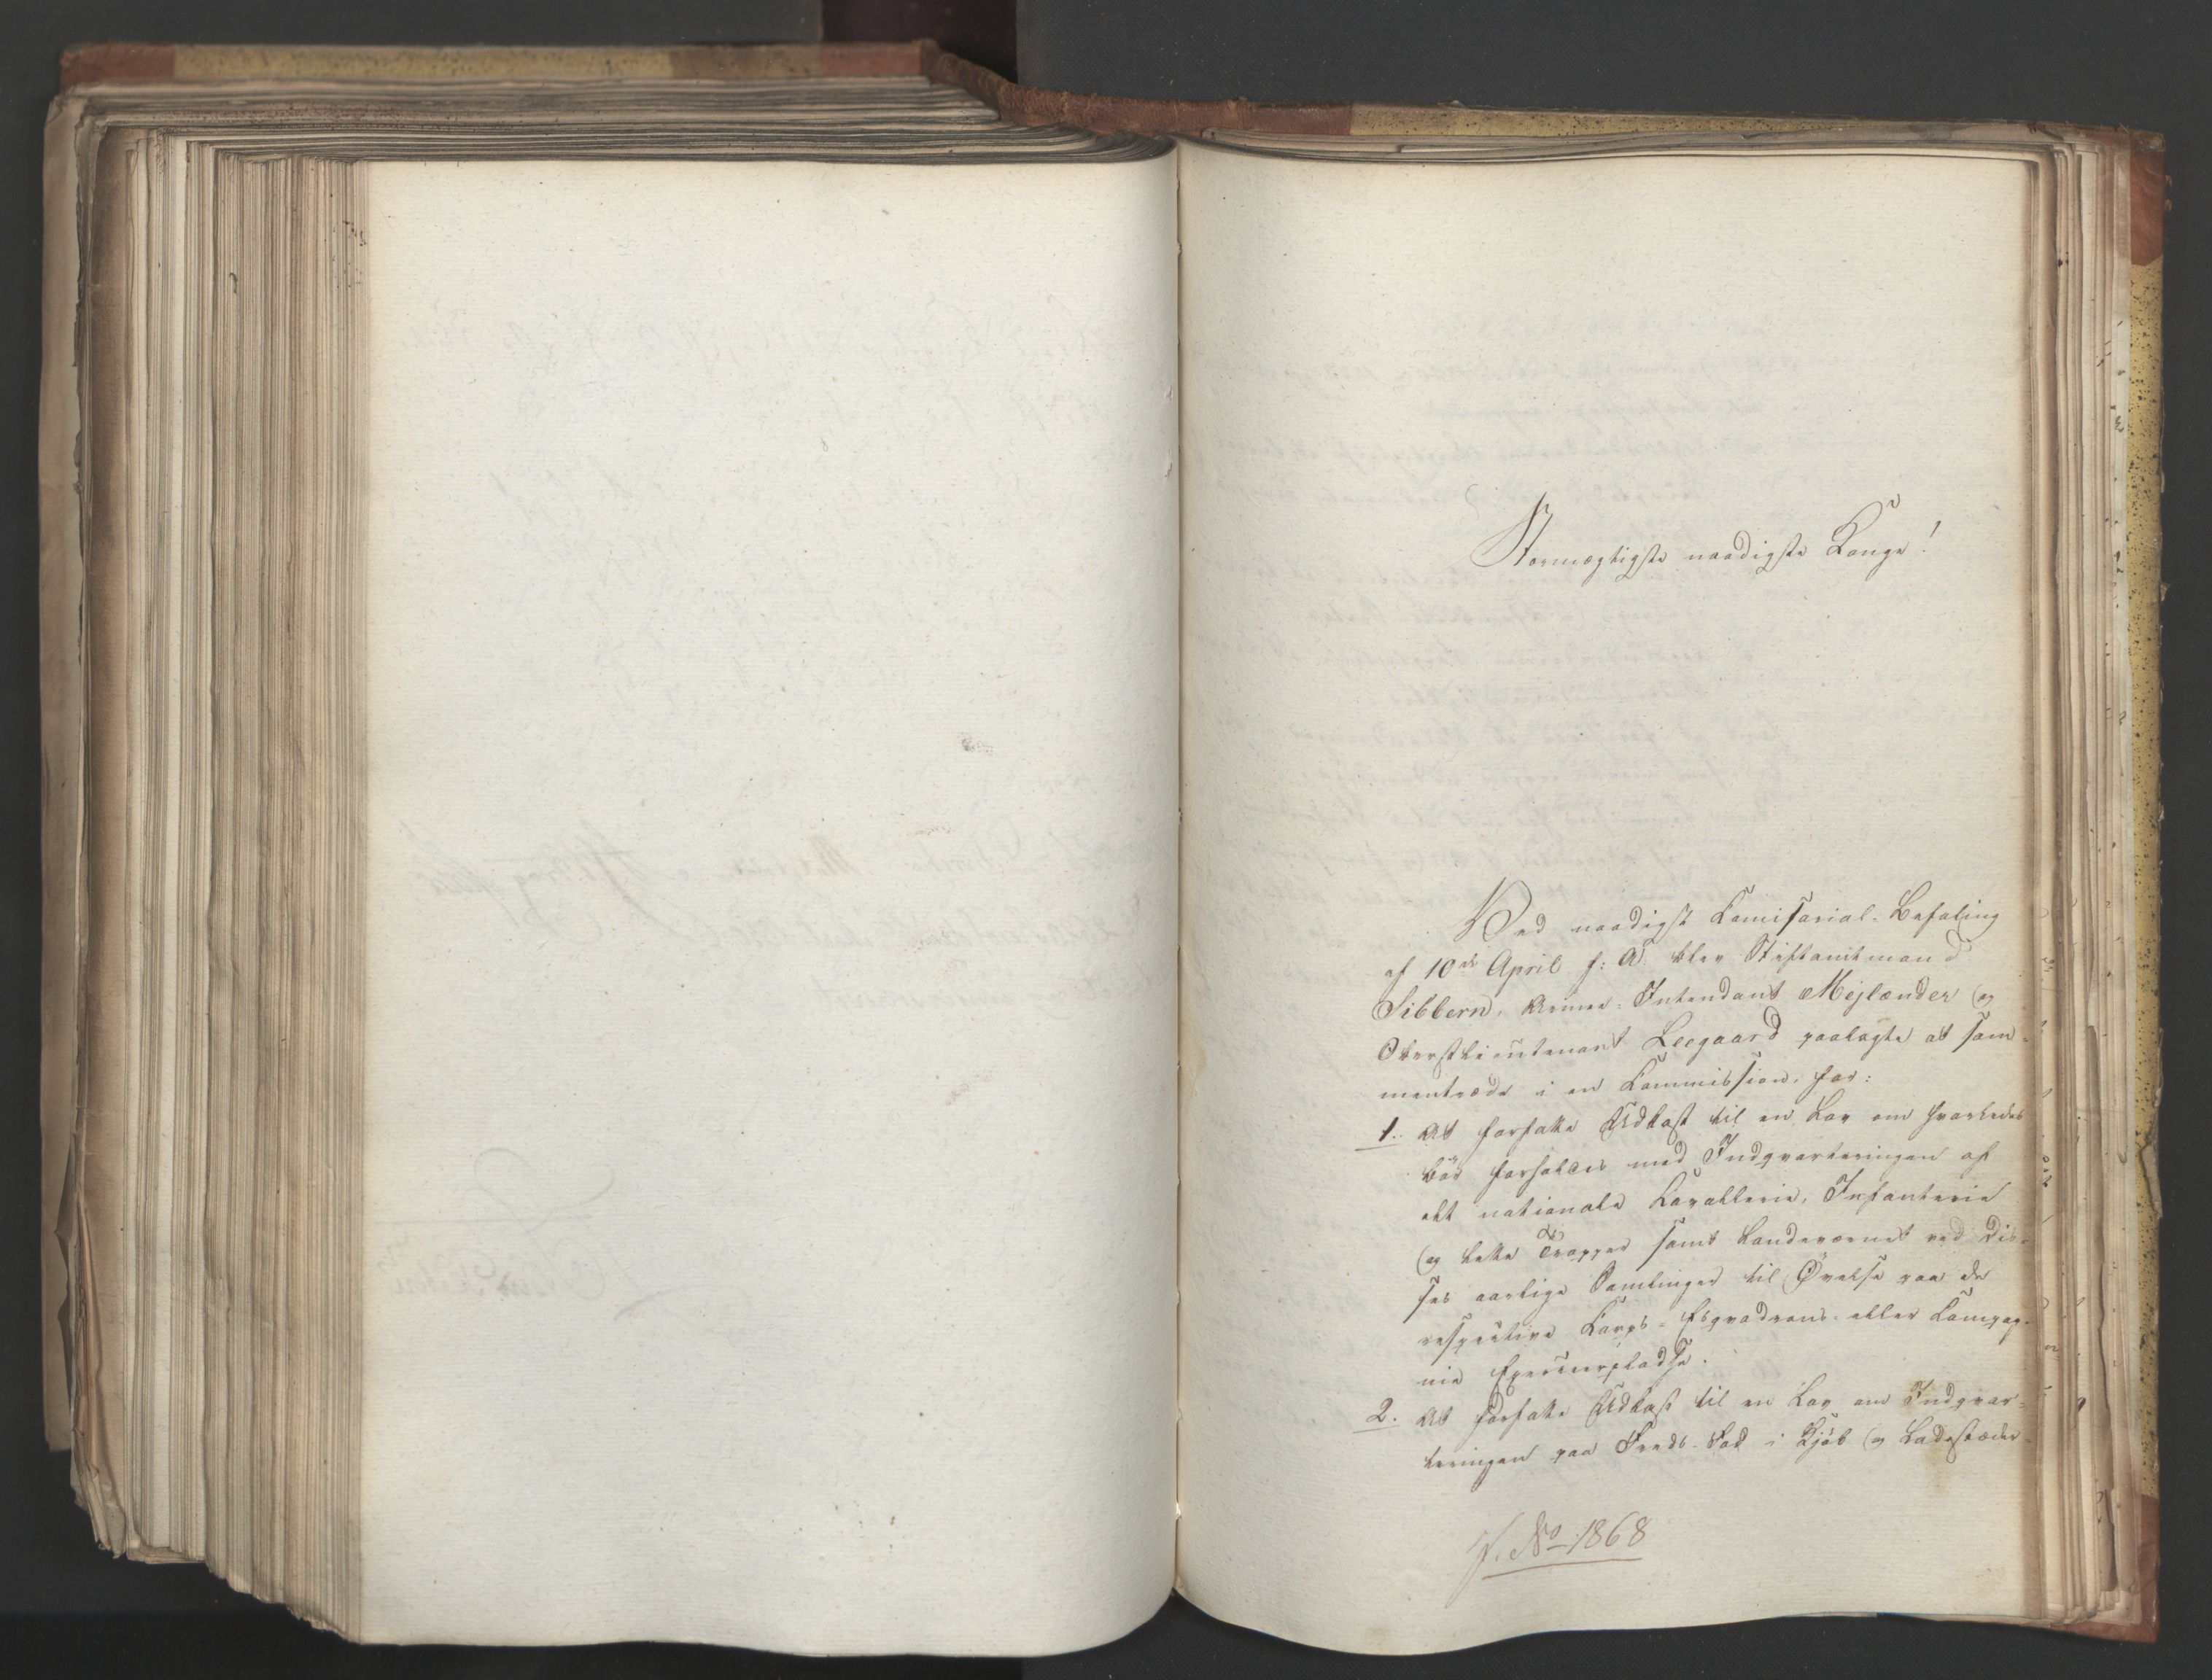 Stormægtigste naadigste Konge!
Ved naadigst Comissarial-Befaling
af 10de April f: A. blev Stiftamtmand
Sibbern, Armee-Intendant Mejlænder og
Oberstlieutenant Leegaard paalagte at sam-
mentræde i en Kommission, for:
1. At forfatte Udkast til en Lov om hvorledes
bör forholdes med Indqvarteringen af
det nationale Cavallerie, Infanterie
og lette Tropper samt Landeværnet ved Dis-
ses aarlige Samlinger til Øvelse paa de
respective Corps- Esqvadrons- eller Compag-
nie Exerceerpladse.
2. At forfatte Udkast til en Lov om Indqvar-
teringen paa Freds-Fod i Kjöb og Ladestæder
J. No 1868